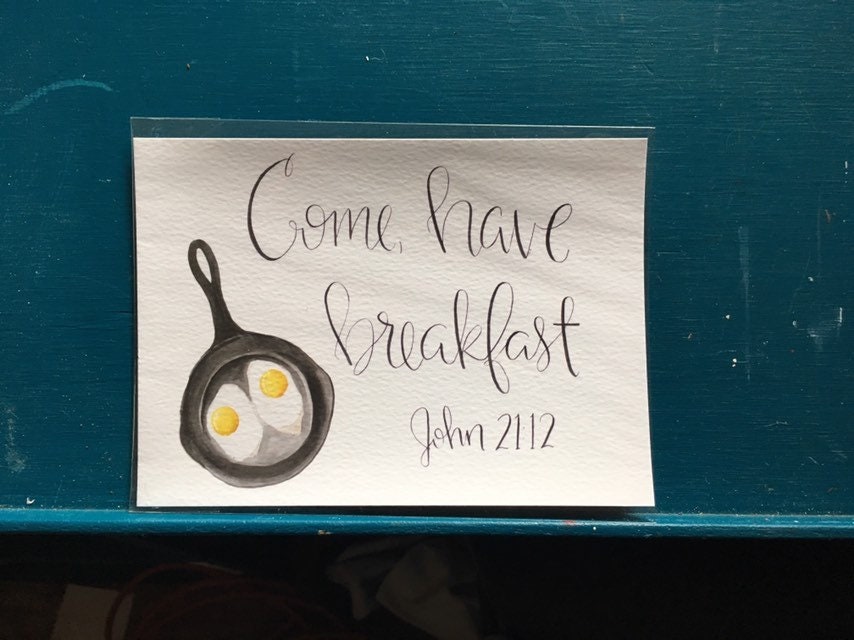 Come, have
breakfast
John 2112